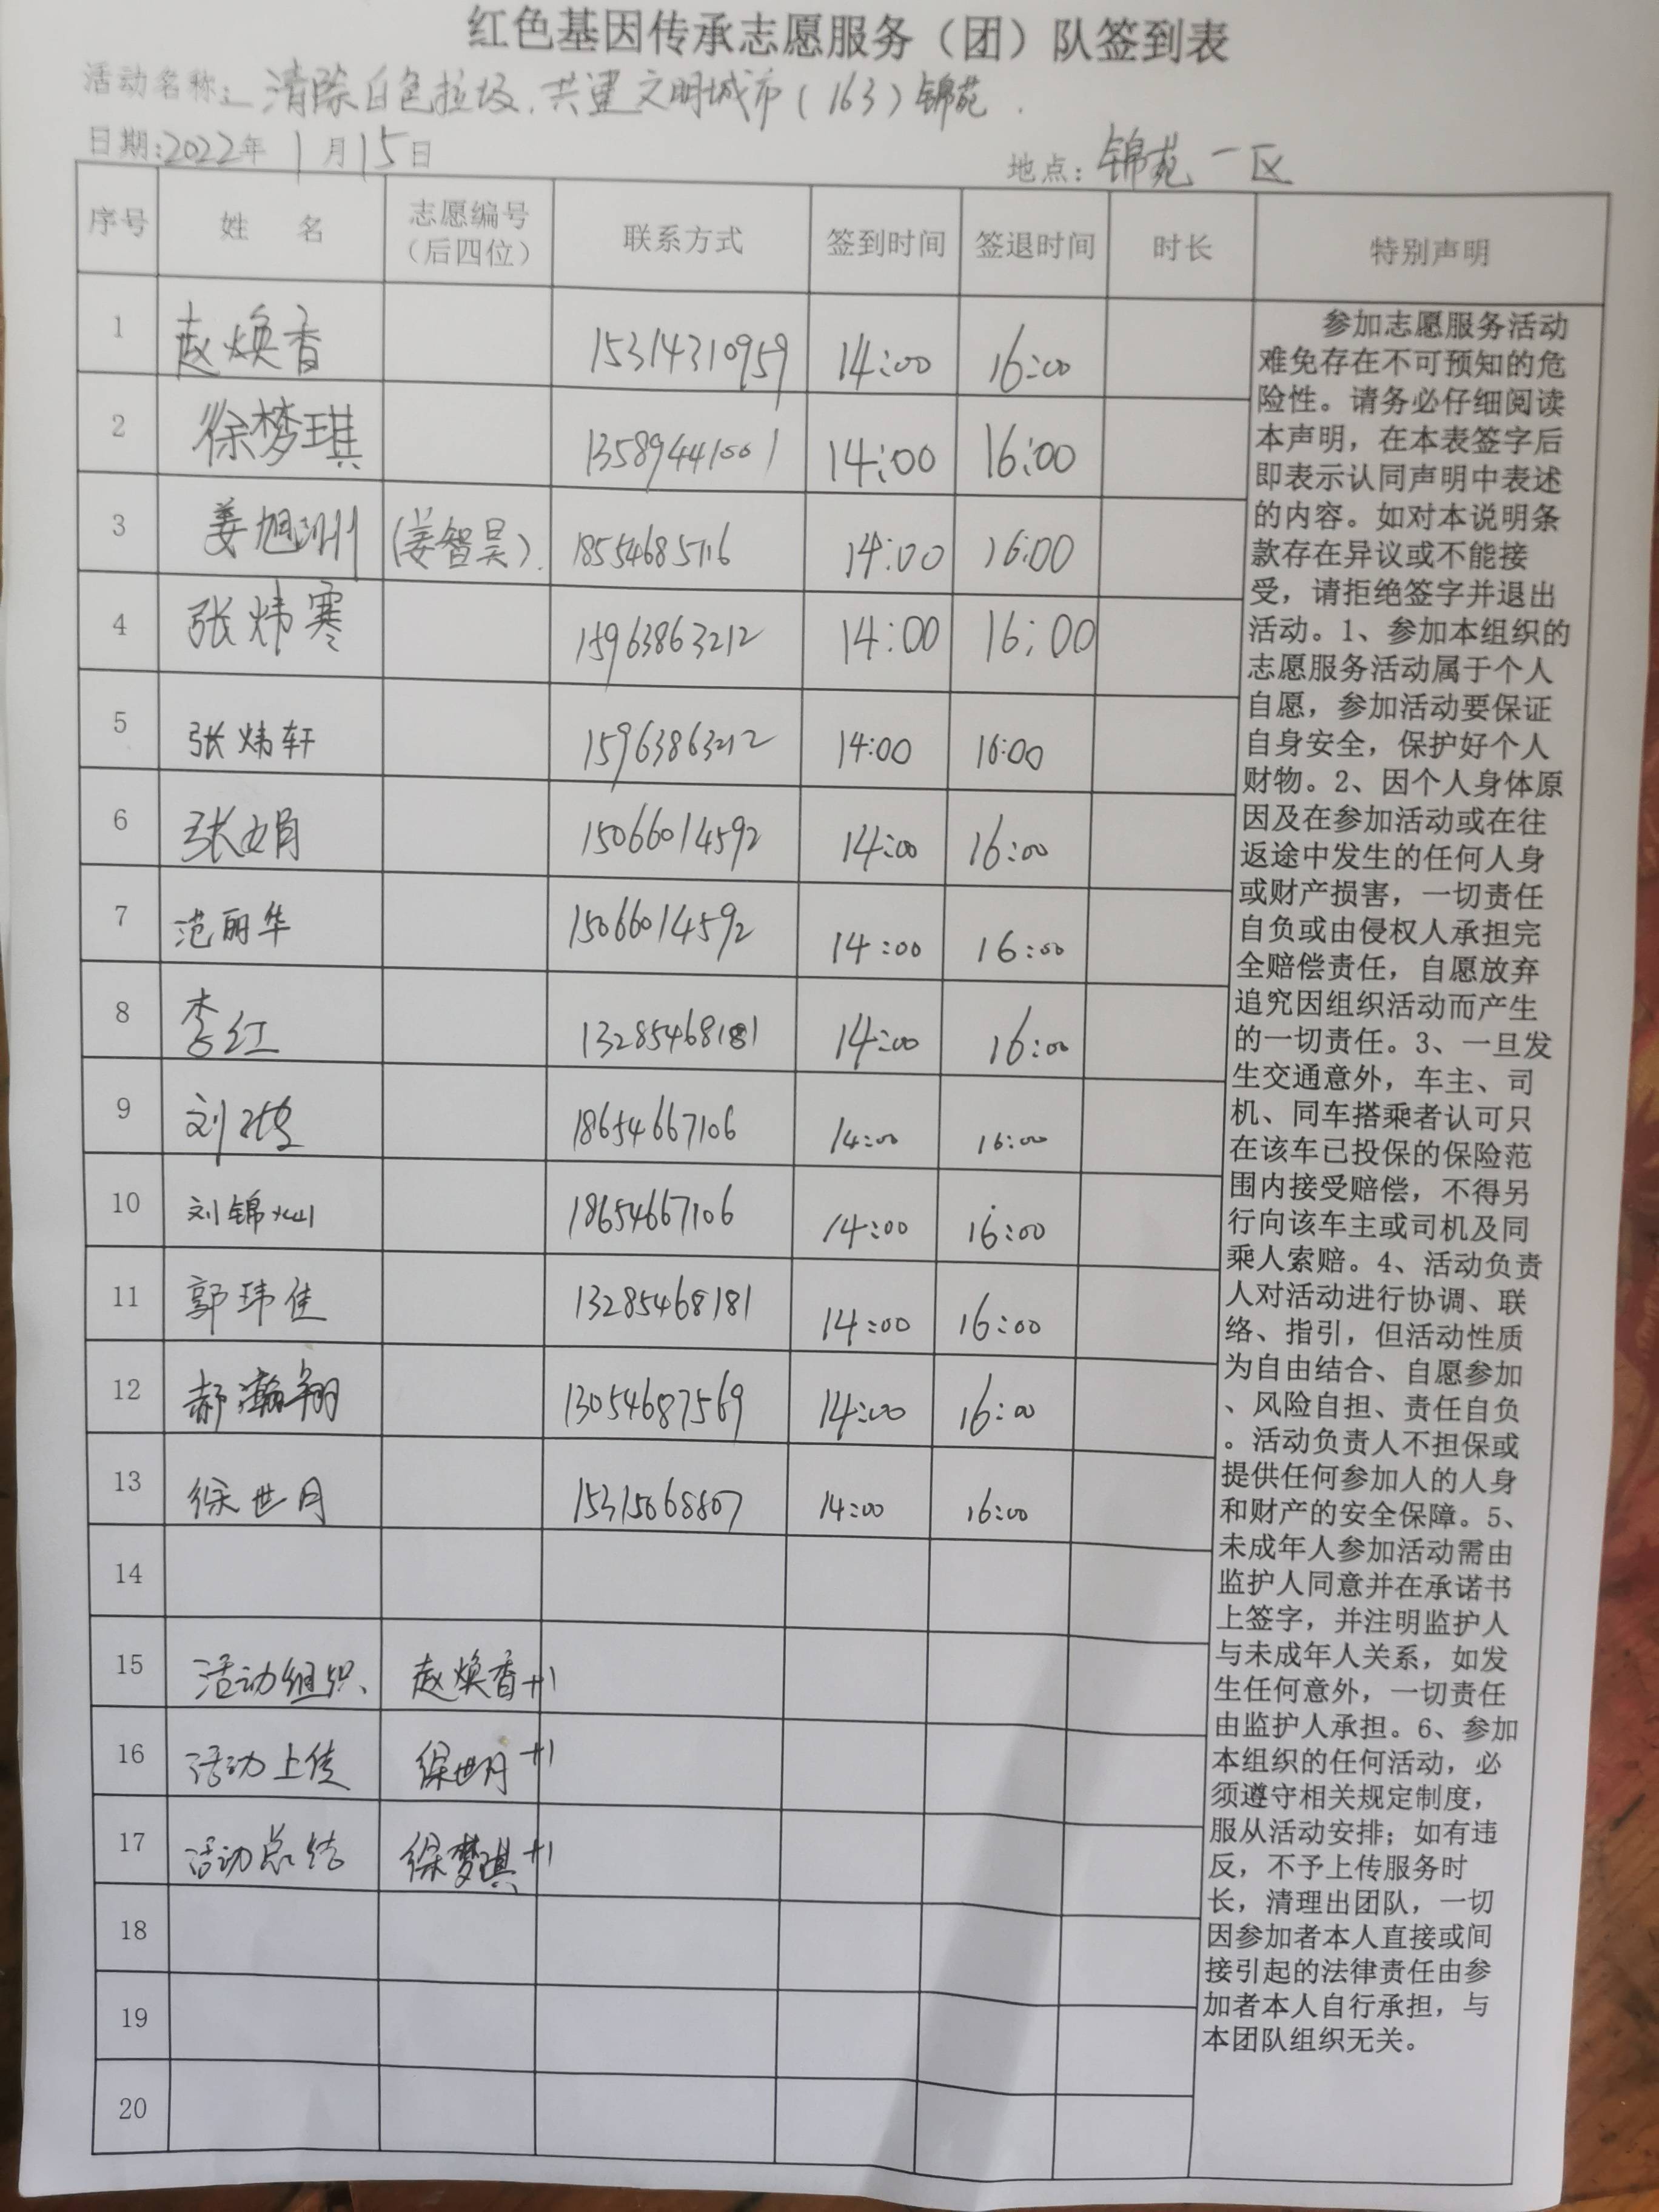 红色基因传承志愿服务（团）队签到表
活动名称：清除白色垃圾、共建文明城市（163）锦苑.
日期:2022年1月15日 地点：锦苑一区
序号 姓 名 志愿编号（后四位） 联系方式 签到时间 签退时间 时长 特别声明
1 赵焕香 15314310959 14:00 16:00
2 徐梦琪 13589441001 14:00 16:00
3 姜旭洲 (姜智昊). 18554685716 14:00 16:00
4 张炜寒 15963863212 14:00 16:00
5 张炜轩 15963863212 14:00 16:00
6 张娟 15066014592 14:00 16:00
7 范丽华 15066014592 14:00 16:00
8 李红 13285468181 14:00 16:00
9 刘 18654667106 14:00 16:00
10 刘锦灿 18654667106 14:00 16:00
11 郭玮佳 13285468181 14:00 16:00
12 郝瀚翔 13054687569 14:00 16:00
13 徐世月 15315068807 14:00 16:00
14
15 活动组织、 赵焕香+1
16 活动上传 徐世月+1
17 活动总结 徐梦琪+1
18
19
20
参加志愿服务活动
难免存在不可预知的危
险性。请务必仔细阅读
本声明，在本表签字后
即表示认同声明中表述
的内容。如对本说明条
款存在异议或不能接
受，请拒绝签字并退出
活动。1、参加本组织的
志愿服务活动属于个人
自愿，参加活动要保证
自身安全，保护好个人
财物。2、因个人身体原
因及在参加活动或在往
返途中发生的任何人身
或财产损害，一切责任
自负或由侵权人承担完
全赔偿责任，自愿放弃
追究因组织活动而产生
的一切责任。3、一旦发
生交通意外，车主、司
机、同车搭乘者认可只
在该车已投保的保险范
围内接受赔偿，不得另
行向该车主或司机及同
乘人索赔。4、活动负责
人对活动进行协调、联
络、指引，但活动性质
为自由结合、自愿参加
、风险自担、责任自负
。活动负责人不担保或
提供任何参加人的人身
和财产的安全保障。5、
未成年人参加活动需由
监护人同意并在承诺书
上签字，并注明监护人
与未成年人关系，如发
生任何意外，一切责任
由监护人承担。6、参加
本组织的任何活动，必
须遵守相关规定制度，
服从活动安排；如有违
反，不予上传服务时
长，清理出团队，一切
因参加者本人直接或间
接引起的法律责任由参
加者本人自行承担，与
本团队组织无关。